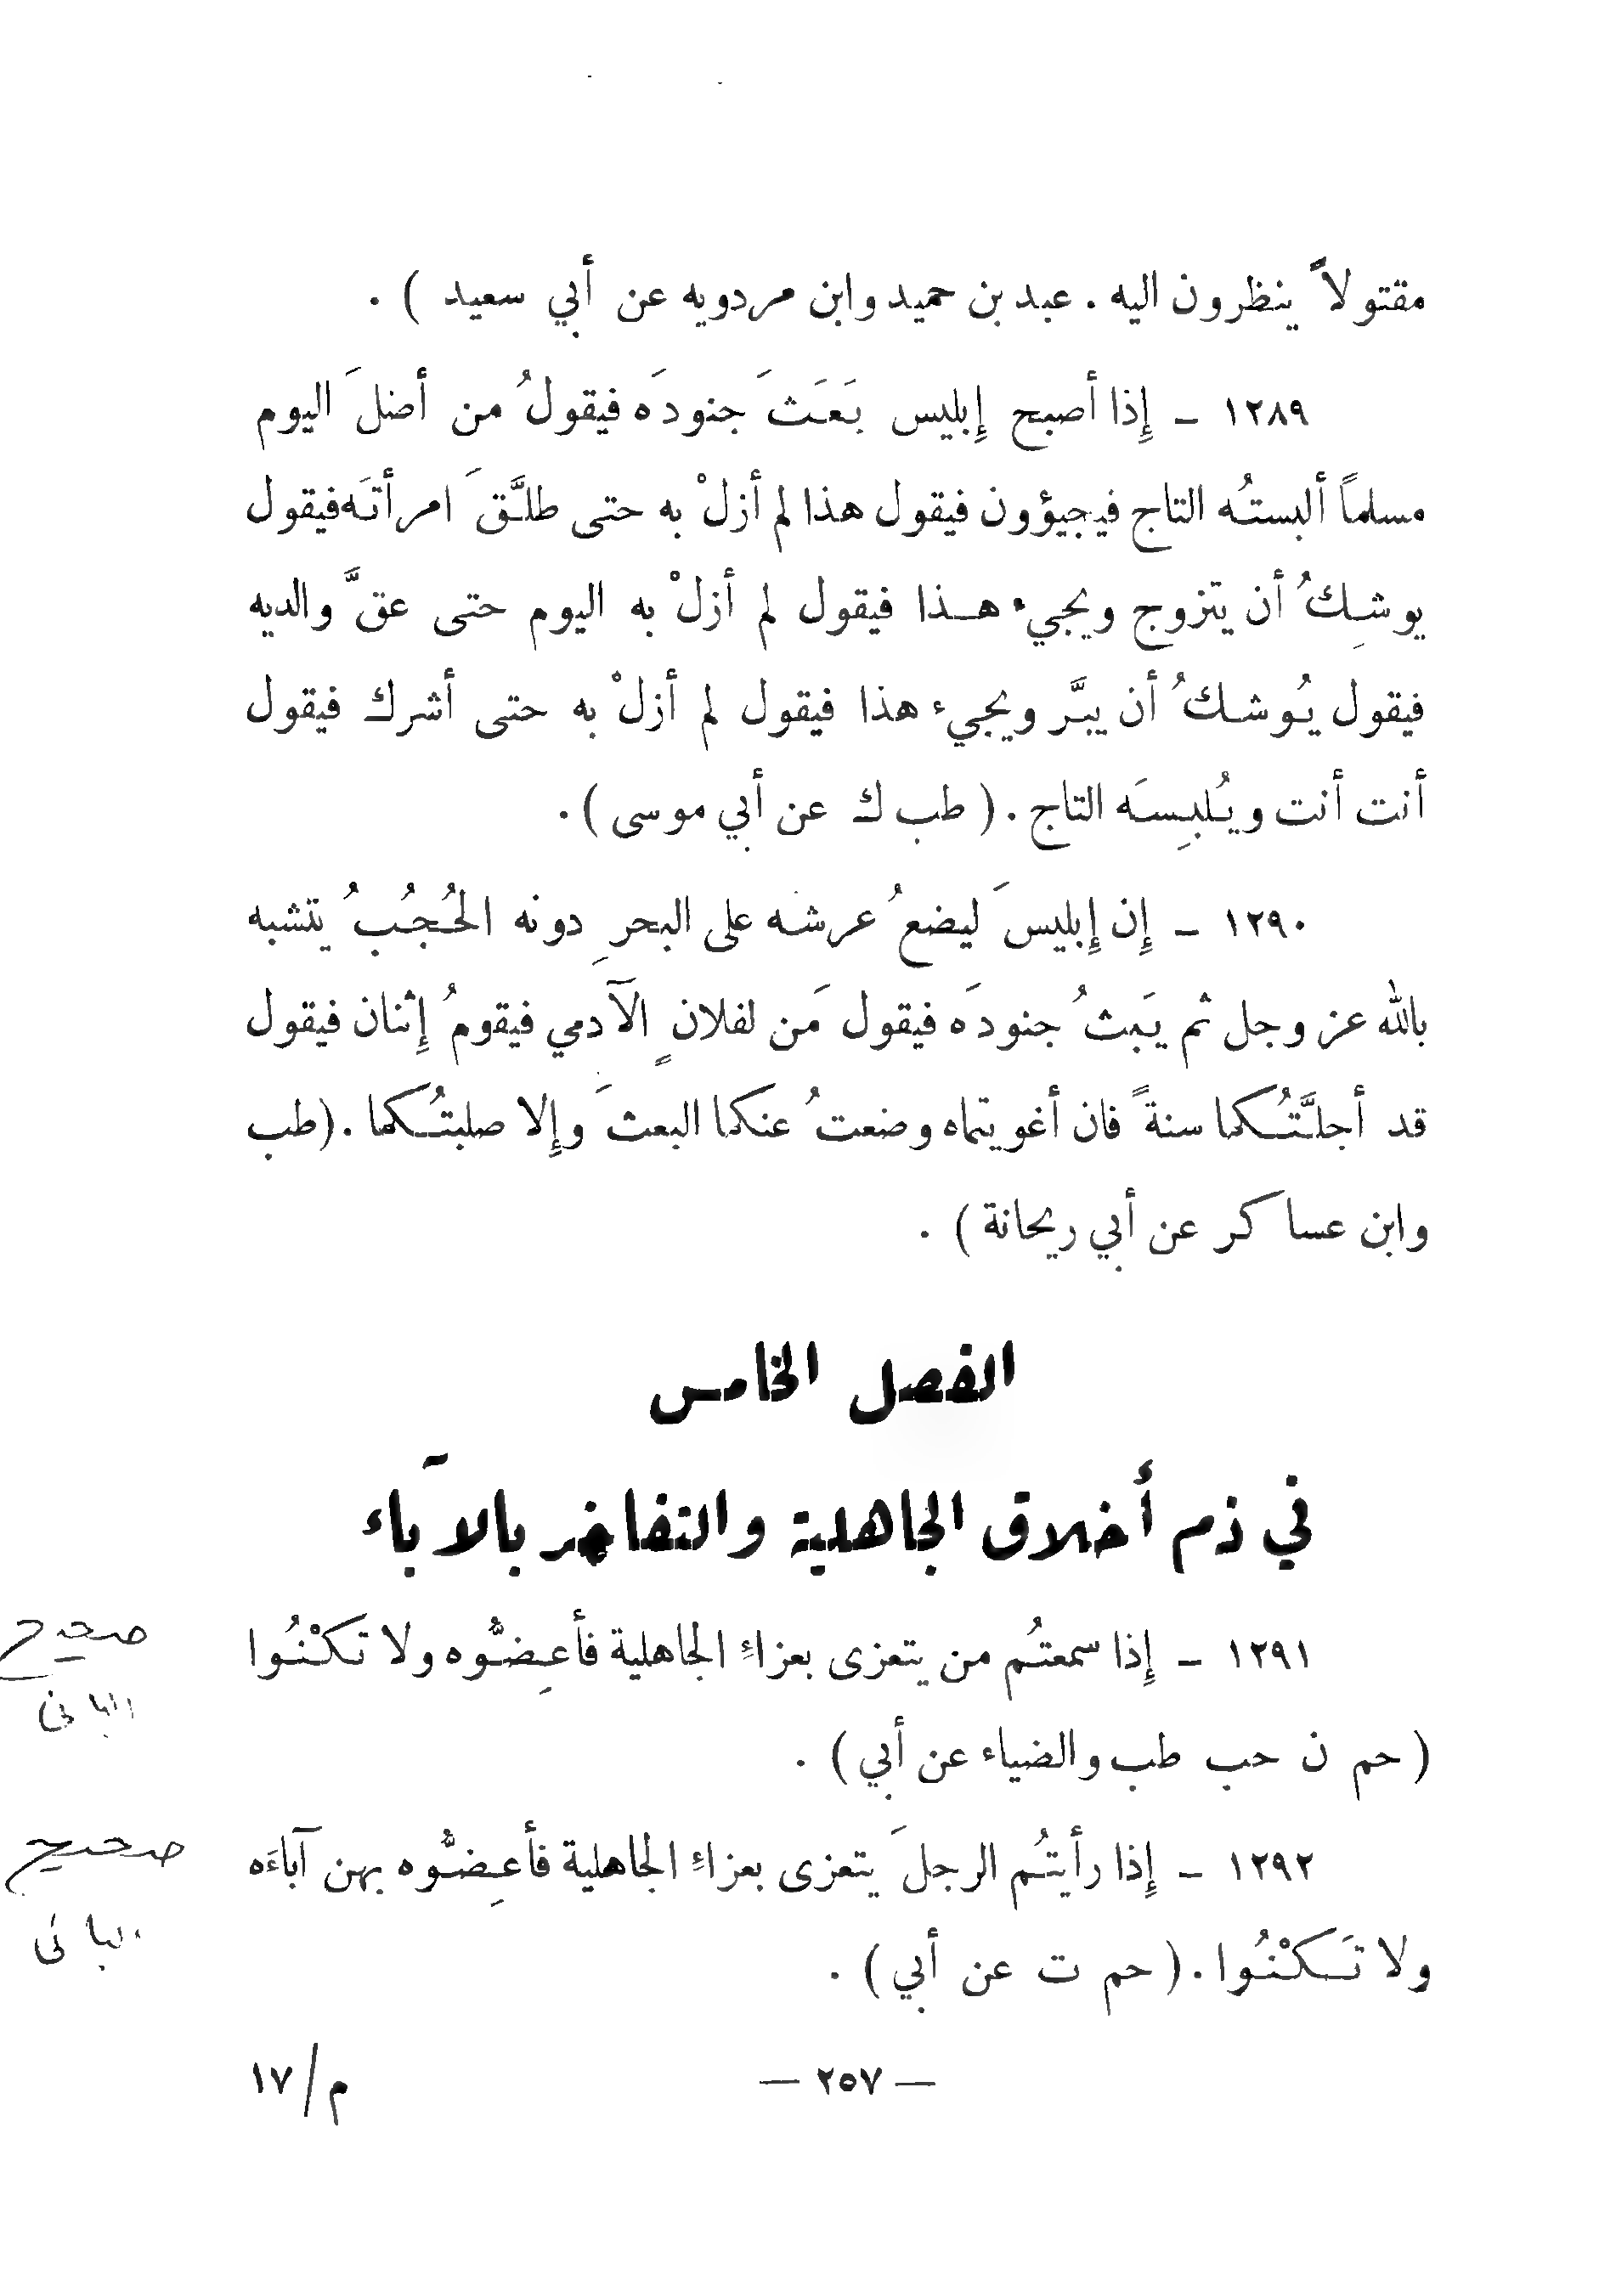 مقتولاً ينظرون اليه . عبد بن حميد وابن مردويه عن أبي سعيد ) .
١٢٨٩ ـ إِذا أصبح إِبليس بَعَثَ جنودَه فيقولُ من أضلَ اليوم
مسلماً ألبستُه التاج فيجيؤون فيقول هذا لم أزلْ به حتى طلَّقَ امرأتَه فيقول
يوشِكُ أن يتزوج ويجيء هذا فيقول لم أزلْ به اليوم حتى عقَّ والديه
فيقول يُوشكُ أن يبرَّ ويجيء هذا فيقول لم أزلْ به حتى أشرك فيقول
أنت أنت ويُلبِسَه التاج . ( طب ك عن أبي موسى ) .
١٢٩٠ ـ إِن إِبليسَ ليضعُ عرشه على البحرِ دونه الحُجُبُ يتشبه
بالله عز وجل ثم يَبثُ جنودَه فيقول مَن لفلانٍ الآدمي فيقومُ إِثنان فيقول
قد أجلَّتُكما سنةً فان أغويتماه وضعتُ عنكما البعثَ وإِلا صلبتُكما . (طب
وابن عساكر عن أبي ريحانة ) .
الفصل الخامس
في ذم أخلاق الجاهلية والتفاخر بالآباء
١٢٩١ ـ إِذا سمعتُم من يتعزى بعزاءِ الجاهلية فأعِضُّوه ولا تَكْنُوا
صحيح
البانى
( حم ن حب طب والضياء عن أبي ) .
١٢٩٢ ـ إِذا رأيتُم الرجلَ يتعزى بعزاءِ الجاهلية فأعِضُّوه بهن آباءَه
صحيح
البانى
ولا تَكْنُوا . ( حم ت عن أبي ) .
— ٢٥٧ —
م/١٧